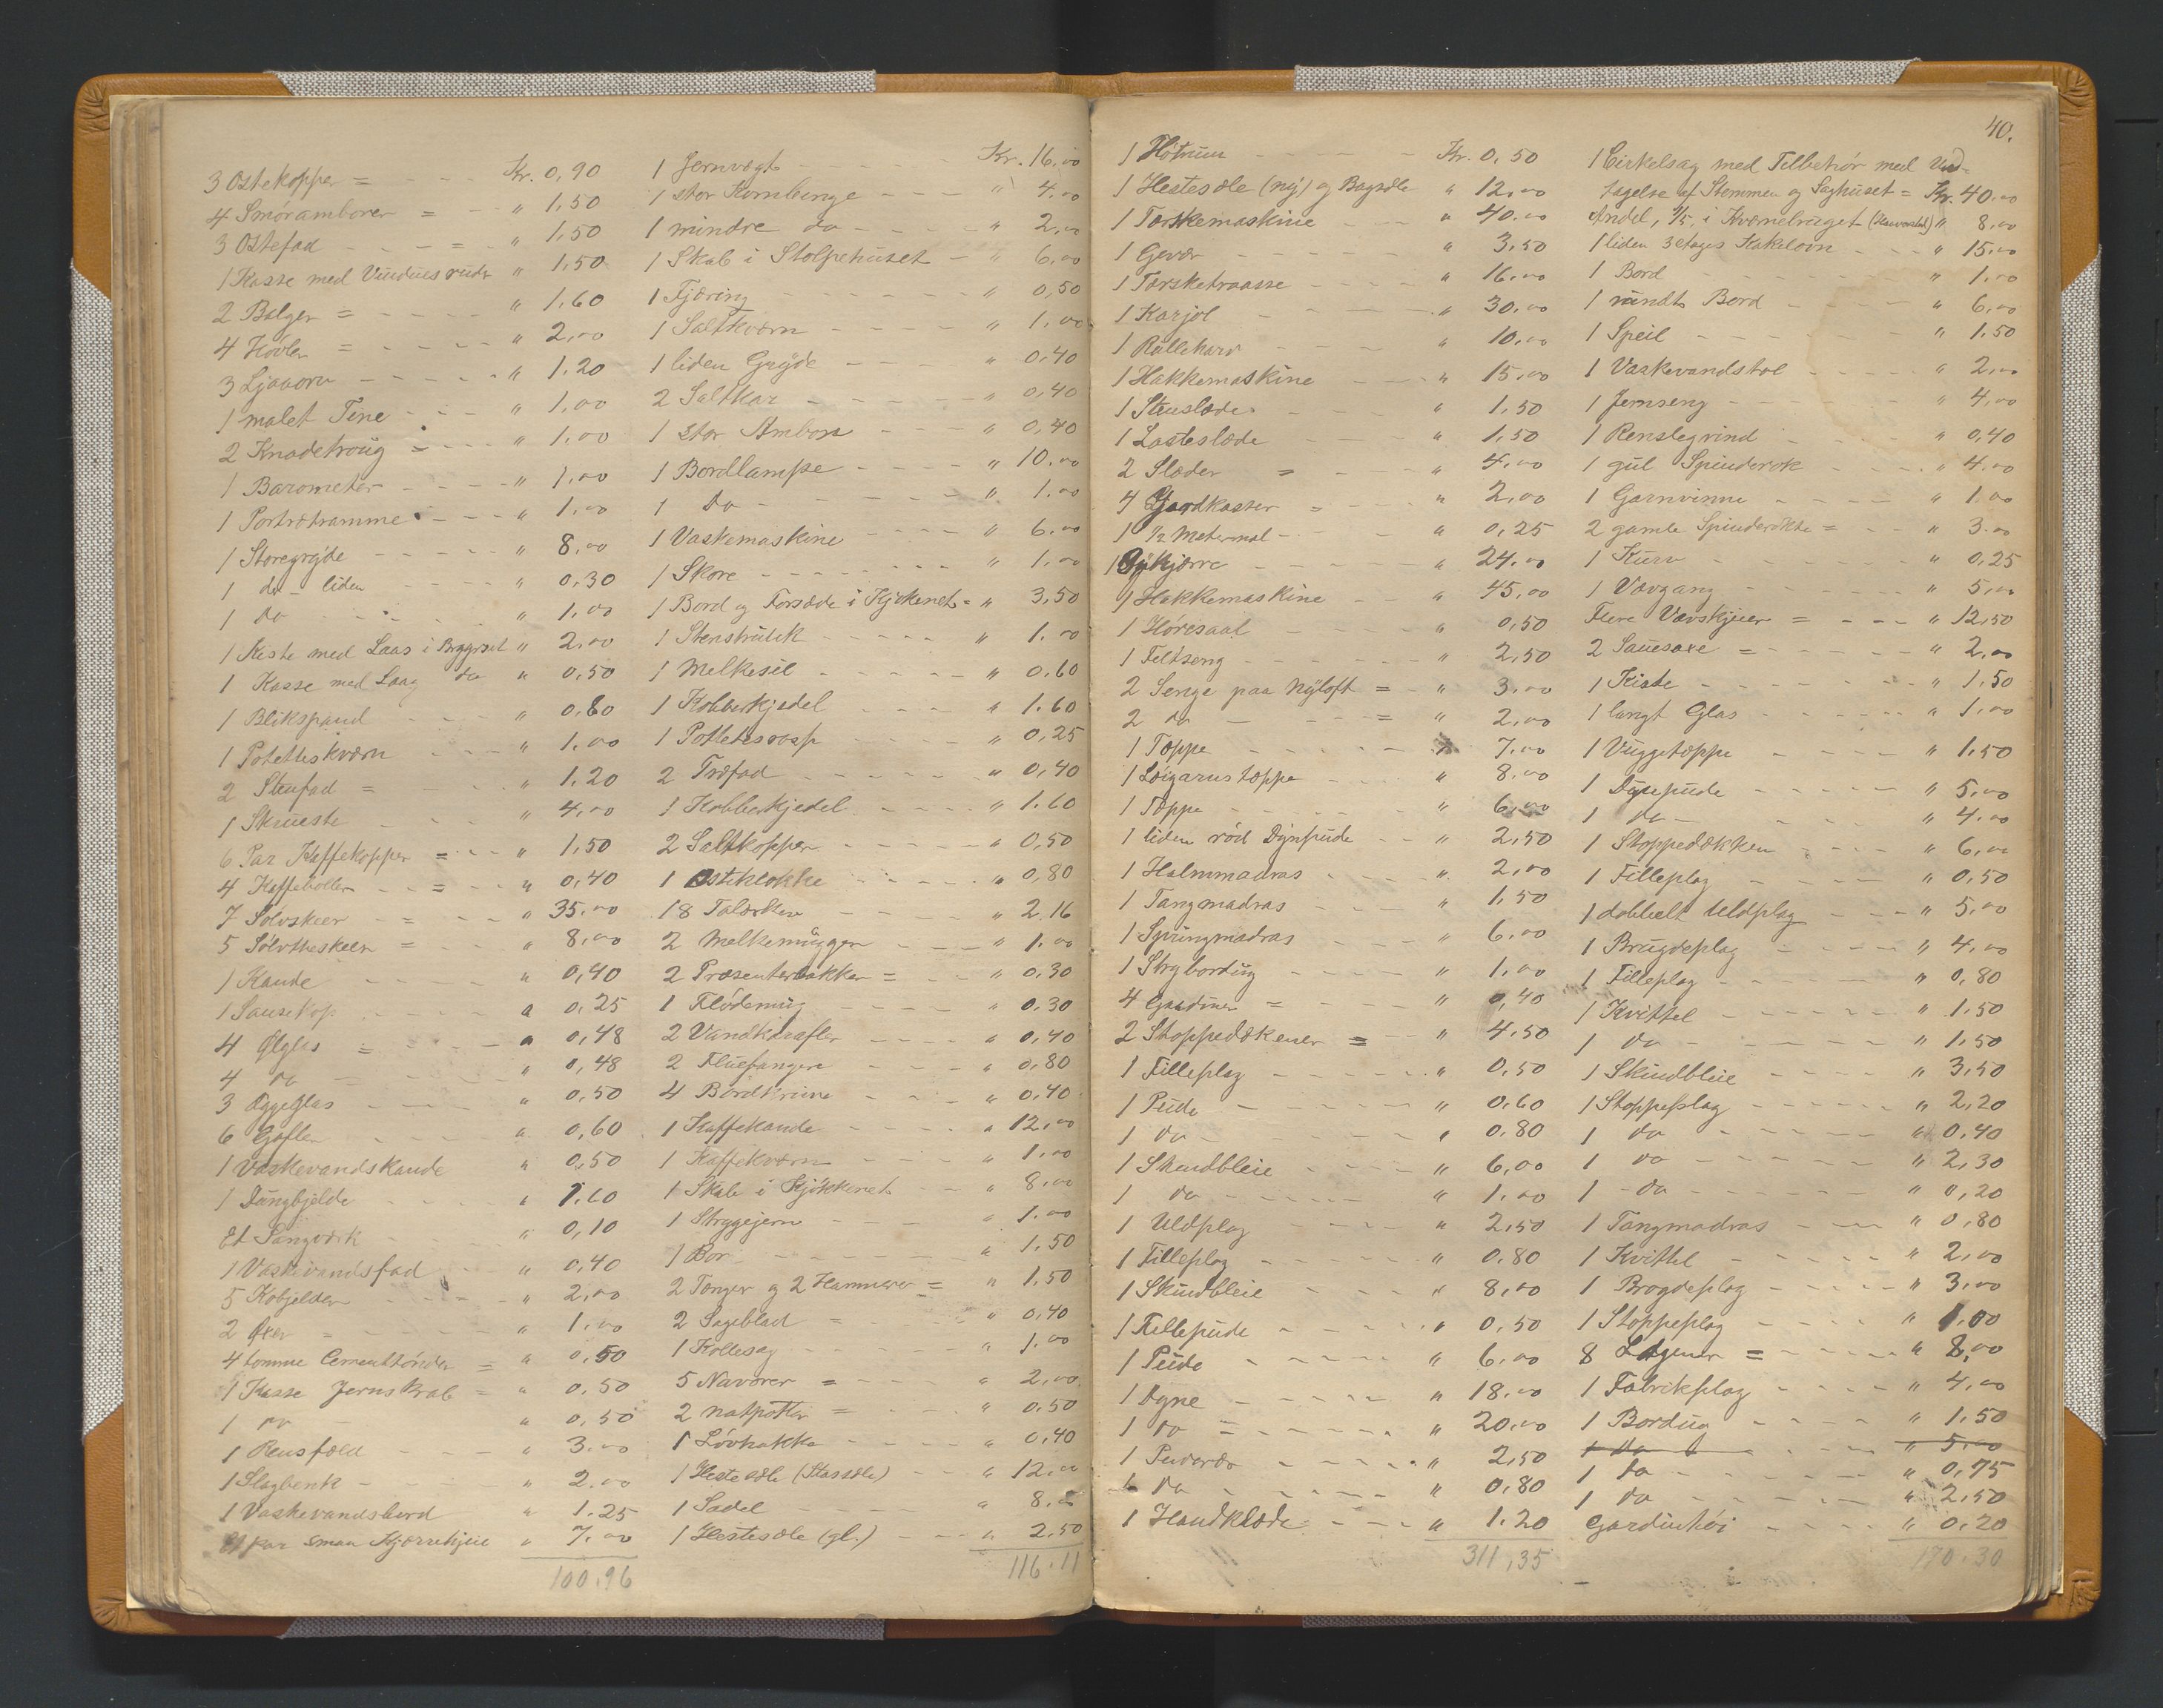 3 Ostekopper = Kr. 0,90
4 Smöramborer = " 1,50
3 Ostefad = " 1,50
1 Kasse med Vinduesruder " 1,50
2 Balger = " 1,60
4 Hövler = " 2,00
3 Ljaaorv " 1,20
1 malet Tine " 1,00
2 Knadetroug = " 1,00
1 Barometer " 1,00
1 Portrætramme " 1,00
1 Storegryde " 8,00
1 do liden " 0,30
1 do " 1,00
1 Kiste med Laas i Bryggset " 2,00
1 Kasse med Laag do " 0,50
1 Blikspand " 0,80
1 Potetteskværn " 1,00
2 Stenfad = " 1,20
1 Skrueste " 4,00
6 Par Kaffekopper = " 1,50
4 Kaffeboller = " 0,40
7 Sölvskeer = " 35,00
5 Sölvtheskeer = " 8,00
1 Kande " 0,40
1 Sausekop " 0,25
4 Ølglas = " 0,48
4 do " 0,48
3 Æggeglas " 0,50
6 Gafler " 0,60
1 Vaskevandskande " 0,50
1 Dungbjelde " 1.60
Et Sangværk " 0,10
1 Vaskevandsfad " 0,40
5 Kobjelder " 2,00
2 Øxer = " 1,00
4 tomme Cementtönder = " 0,50
1 Kasse Jernskrab = " 0,50
1 do " 0,50
1 Rensfæld " 3,00
1 Slagbenk " 2,00
1 Vaskevandsbord " 1.25
Et par smaa Kjærrehjul " 7,00
100.96
1 Jernvægt Kr. 16,00
1 stor Kornbinge " 4,00
1 mindre do " 2,00
1 Skab i Stolpehuset " 6,00
1 Fjæring " 0,50
1 Saltkværn " 1,00
1 liden Gryde " 0,40
2 Saltkar " 0,40
1 stor Ambor " 0,40
1 Bordlampe " 10,00
1 Do " 1,00
1 Vaskemaskine " 6,00
1 Skore " 1,00
1 Bord og Forsæde i Kjökkenet = " 3,50
1 Stenskrukk " 1,00
1 Melkesil " 0,60
1 Kobberkjedel " 1.60
1 Pottetesrasp " 0,25
2 Træfad " 0,40
1 Kobberkjedel " 1.60
2 Saltkopper " 0,50
1 Osteklokke " 0,80
18 Talærken " 2,16
2 Melkemugger " 1,00
2 Præsenterbakker = " 0,30
1 Flödemug " 0,30
2 Vandkarafler " 0,40
2 Fluefangere " 0,80
4 Bordkrune " 0,40
1 Kaffekande " 12,00
1 Kaffekværn " 1,00
1 Skab i Kjökkenet " 8,00
1 Strygejern " 1,00
1 Bor " 1,50
2 Tænger og 2 Hammerer = " 1,50
2 Sageblad = " 0,40
1 Kollesag " 1,00
5 Navarer = " 2,00
2 natpotter = " 0,50
1 Lövhakke " 0,40
1 Hestesæle (Stassæle) " 12,00
1 Sadel " 8,00
1 Hestesæle (gl.) " 2,50
116.11
40.
1 Hötrum Kr. 0,50
1 Hestesæle (ny) og Bagsæle " 12,00
1 Tærskemaskine " 40.00
1 Gevær " 3,50
1 Tærsketraasse " 16,00
1 Karjol " 30,00
1 Rullekarv " 10,00
1 Hakkemaskine " 15,00
1 Stenslæde " 1,50
1 Lasteslæde " 1,50
2 Slæder = " 4,00
4 Gjordkaster = " 2,00
1 1/2 Metermal " 0,25
1 Gjikjærre " 24,00
1 Hakkemaskine " 45,00
1 Höresaal " 0,50
1 Feltseng " 2,50
2 Senge paa Nyloft = " 3,00
2 do = " 2,00
1 Tæppe " 7,00
1 Löigarnstæppe " 8,00
1 Tæppe " 6,00
1 liden röd Dynpude " 2,50
1 Halmmadras " 2,00
1 Tangmadras " 1,50
1 Springmadras " 6,00
1 Strybordug " 1,00
4 Gardiner = " 0,40
2 Stoppedækener = " 4,50
1 Filleplag " 0,50
1 Pude " 0,60
1 do " 0,80
1 Skindbleie " 6,00
1 do " 1,00
1 Uldplag " 2,50
1 Filleplag " 0,80
1 Skindbleie " 8,00
1 Fillepude " 0,50
1 Pude " 6,00
1 Dyne " 18,00
1 do = " 20,00
1 Pudevar " 2,50
6 do " 0,80
1 Haandklæde " 1.20
311,35
1 Cirkelsag med Tilbehör med Und-
tagelse af Stemmen og Saghuset = Kr. 40,00
Andel, 1/5, i Kværnebruget " 8,00
1 liden 3 etages Kakelovn " 15,00
1 Bord " 1,00
1 rundt Bord " 6,00
1 Speil " 1,50
1 Vaskevandstol " 2,00
1 Jernseng " 4,00
1 Renslegrind " 0,40
1 gul Spinderok " 4,00
1 Garnvinne " 1,00
2 gamle Spinderokke = " 3,00
1 Kurv " 0,25
1 Vævgang " 5,00
Flere Vævskjeer = " 12,50
2 Sauesaxe = " 2,00
1 Kiste " 1,50
1 langt Glas " 1,00
1 Vuggetæppe " 1,50
1 Dynepude " 5,00
1 do " 4,00
1 Stoppedækken " 6,00
1 Filleplag " 0,50
1 dobbelt Uldplag " 5,00
1 Brugdeplag " 4,00
1 Filleplag " 0,80
1 Kvittel " 1,50
1 do " 1,50
1 Skindbleie " 3,50
1 Stoppeplag " 2,20
1 do " 0,40
1 do " 2,30
1 do " 0,20
1 Tangmadras " 0,80
1 Kvittel " 2,00
1 Brogdeplag " 3,00
1 Stoppeplag " 1,00
8 Lagener = " 8,00
1 Fabrikplag " 4,00
1 Bordug " 1,50
1 do " 5,00
1 do " 0,75
1 do " 2,50
Gardintöi " 0,20
190.30